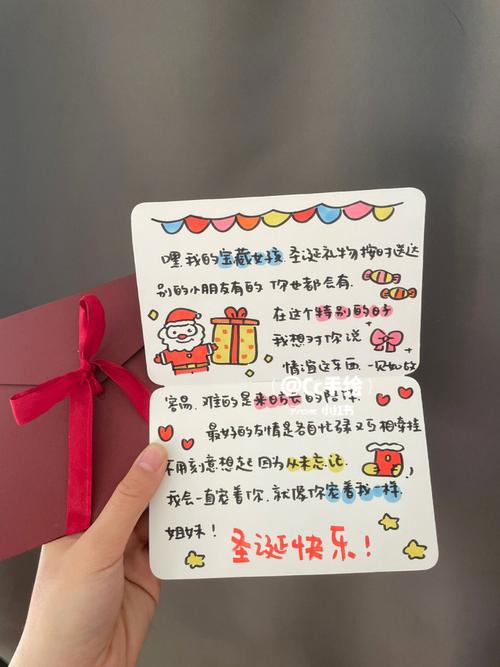 嘿,我的宝藏女孩,圣诞礼物按时送达
别的小朋友有的 你也都会有.
在这个特别的日子
我想对你说
情谊这东西,一见如故
@Cc手绘
小红书
容易,难的是来日方云的陪伴.
最好的友情是各自忙碌又互相牵挂
不用刻意想起 因为从未忘记.
我会一直宠着你,就像你宠着我一样,
姐妹!
圣诞快乐!